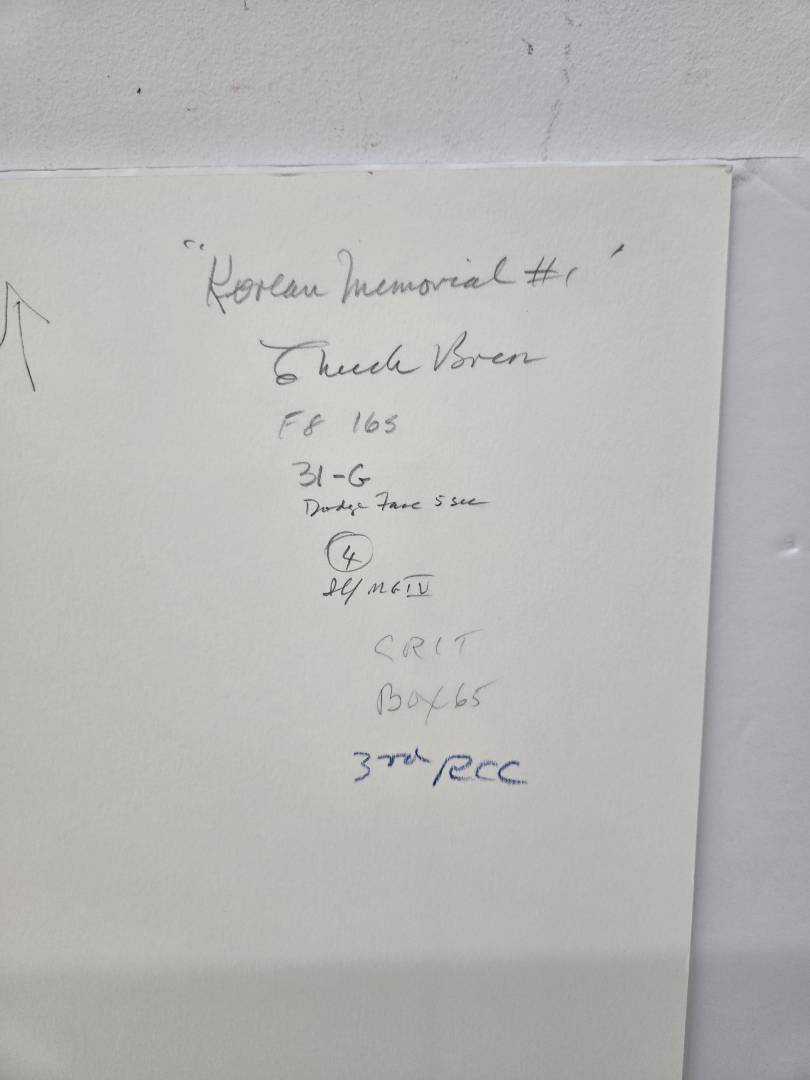 "Korean Memorial #1"
Chuck Bren
F8 16s
31-G
Dodge Face 5 sec
4
MG IV
CRIT
BOX 65
3rd RCC